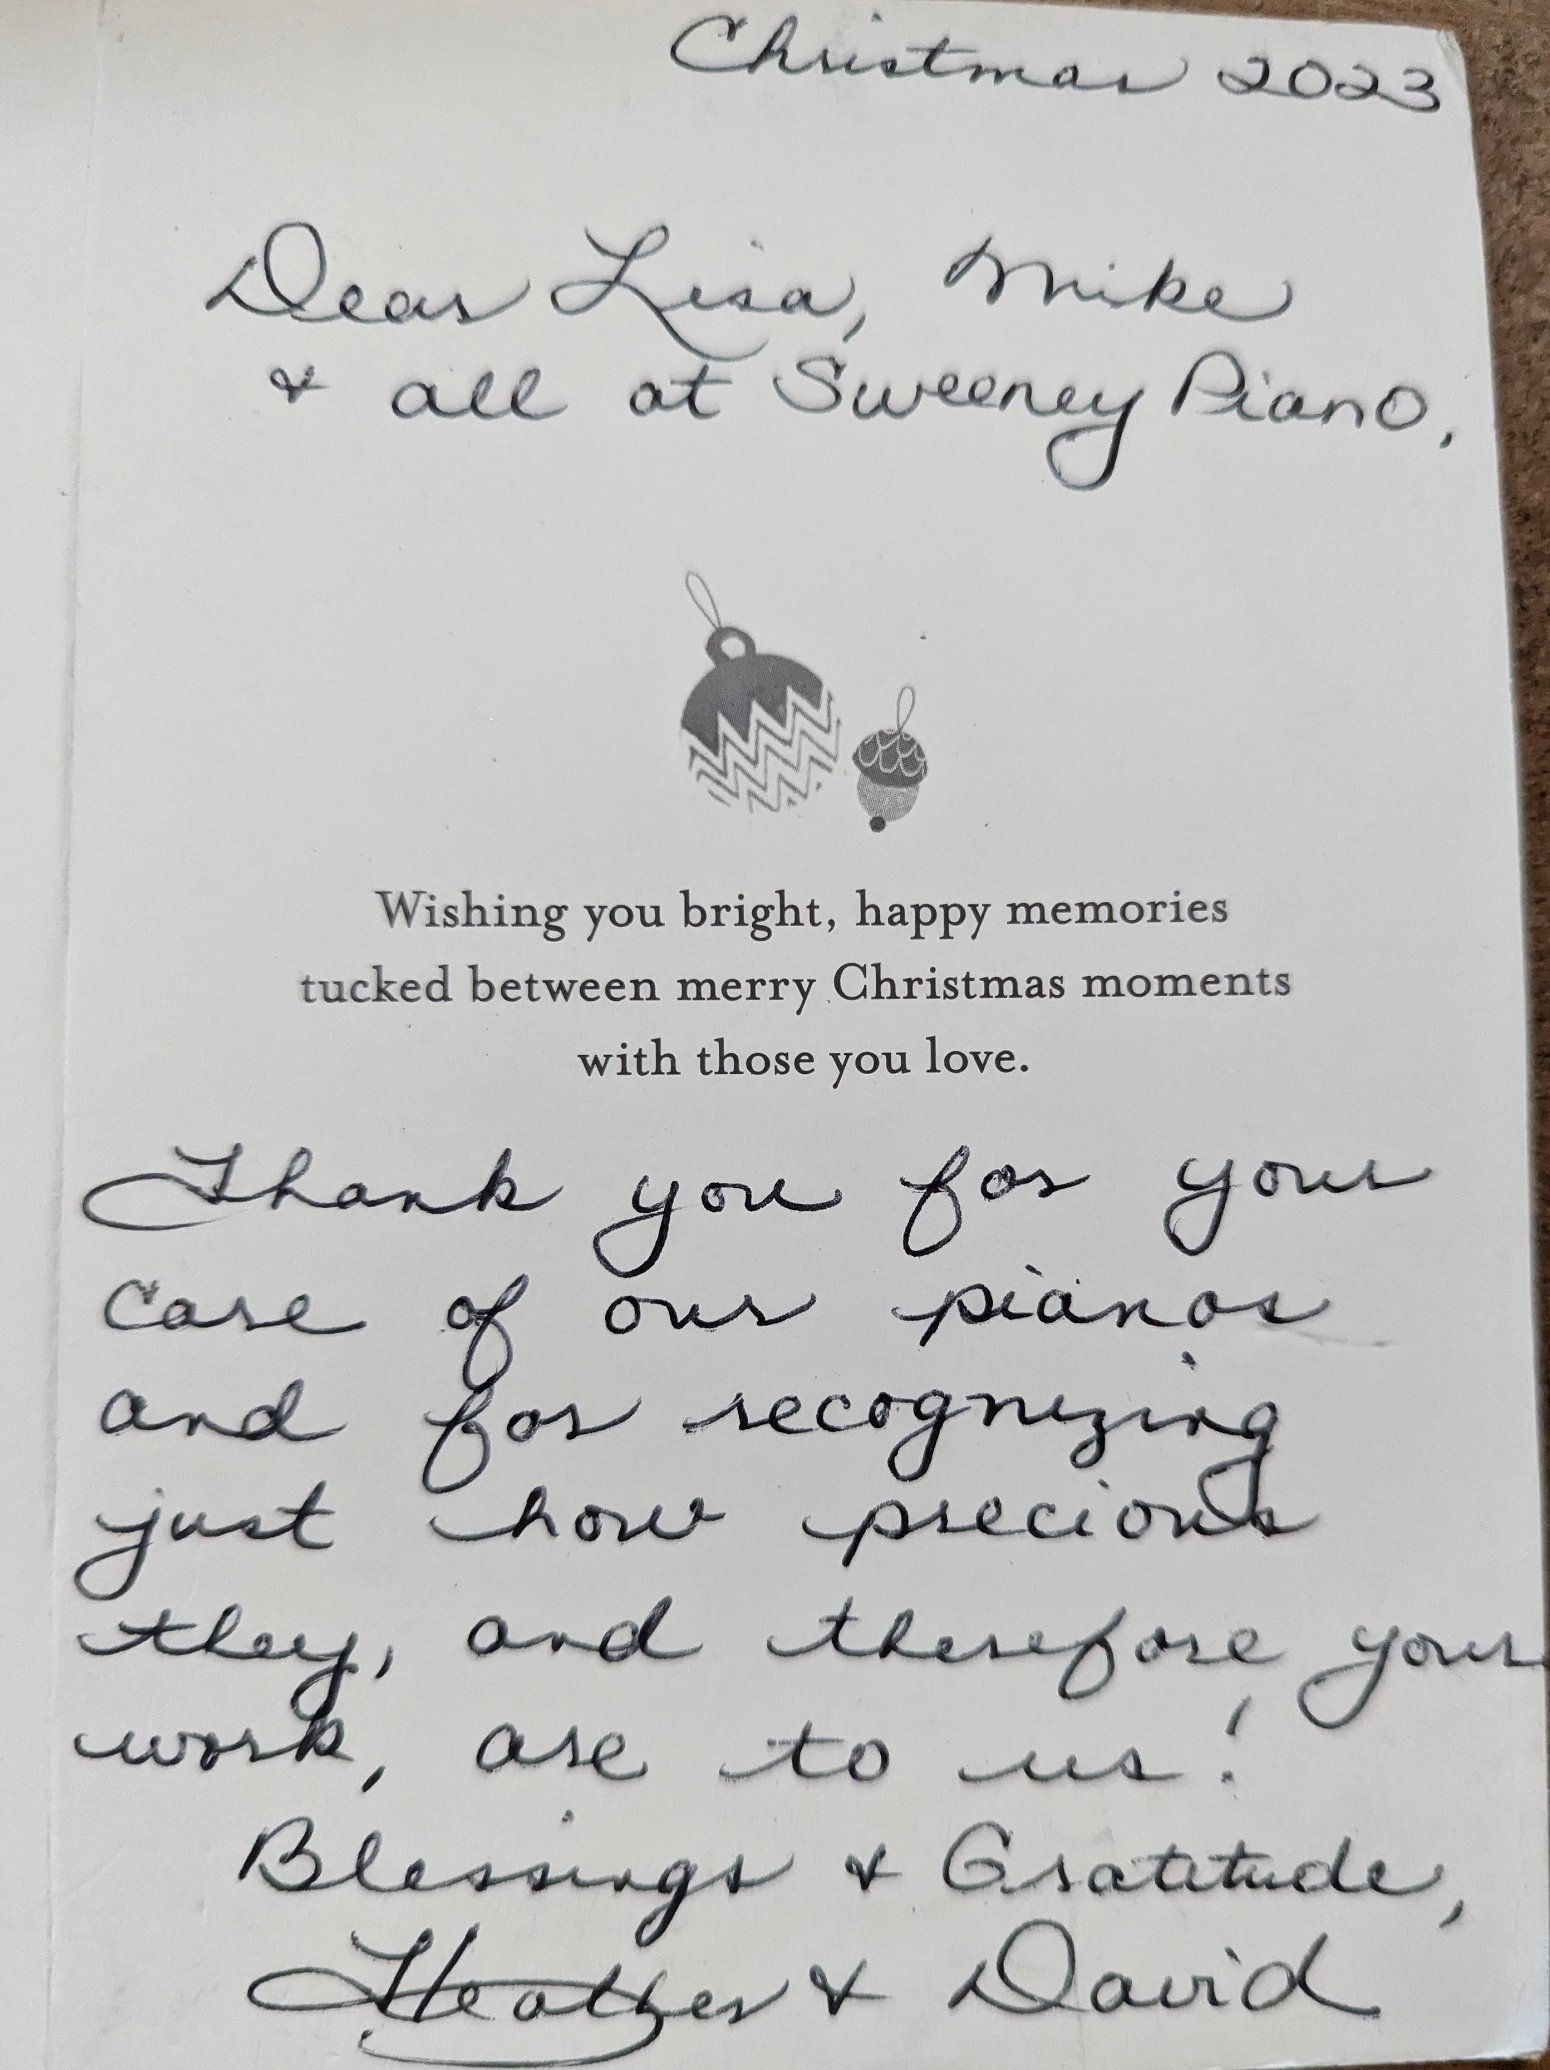 Christmas 2023
Dear Lisa, Mike
& all at Sweeney Piano,
Wishing you bright, happy memories
tucked between merry Christmas moments
with those you love.
Thank you for your
care of our pianos
and for recognizing
just how precious
they, and therefore your
work, are to us!
Blessings & Gratitude,
Heather & David